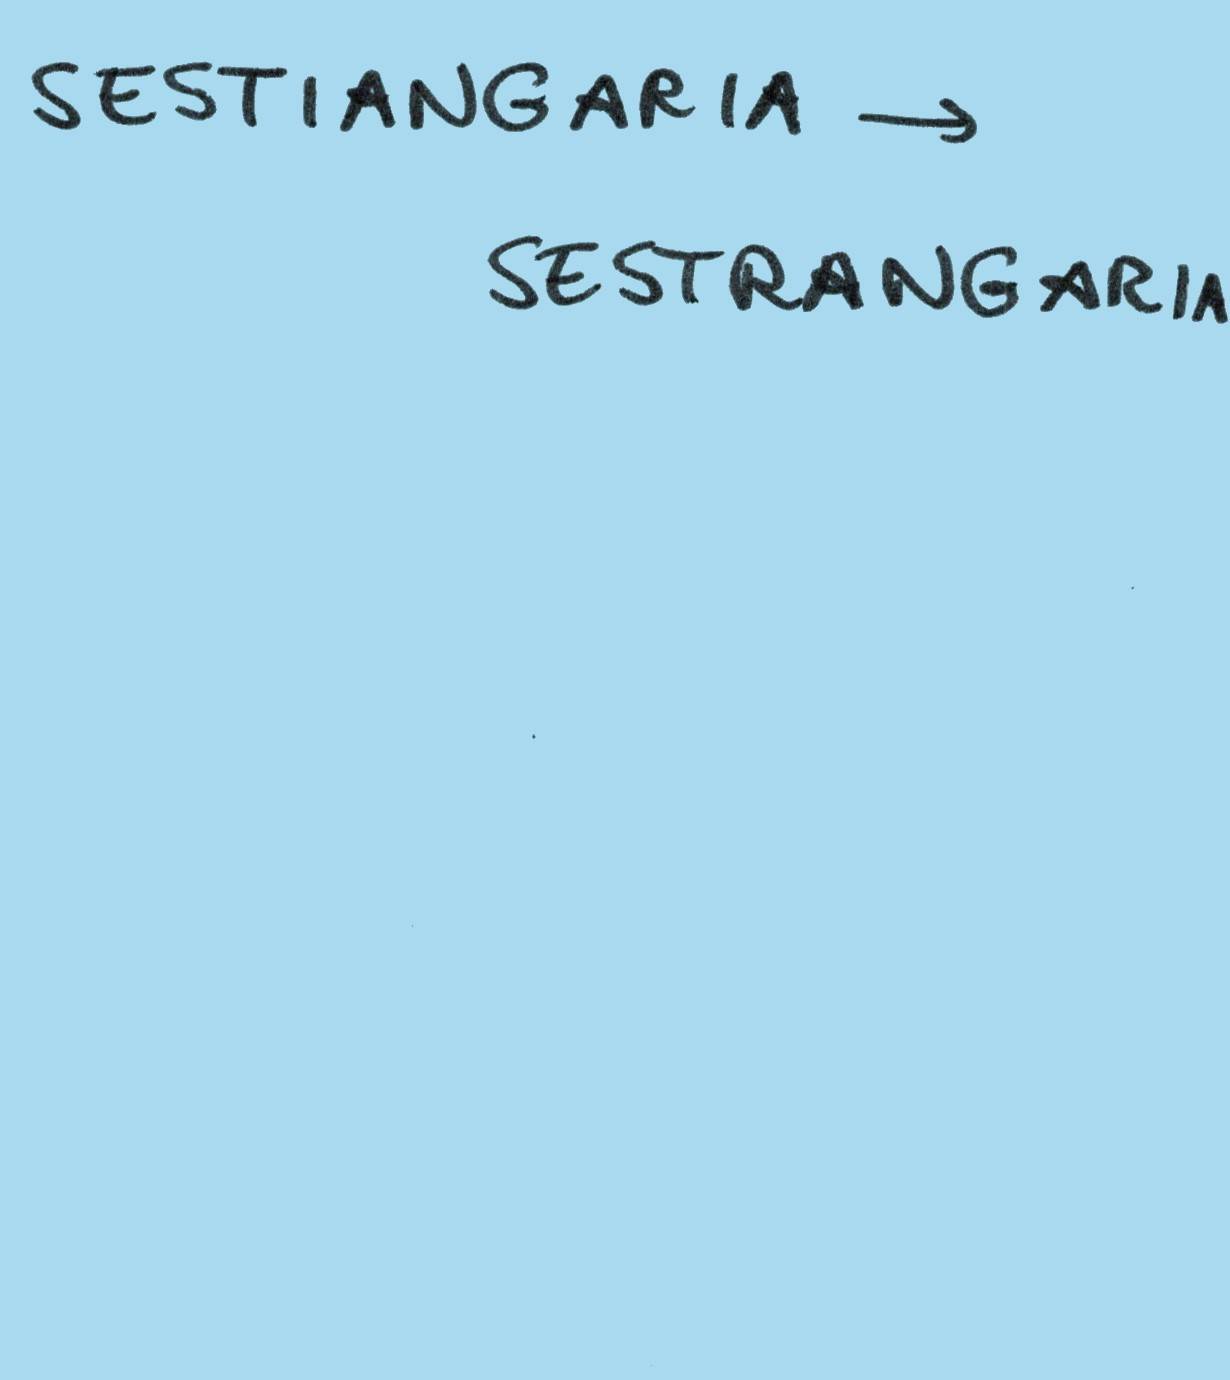 SESTIANGARIA →
SESTRANGARIA